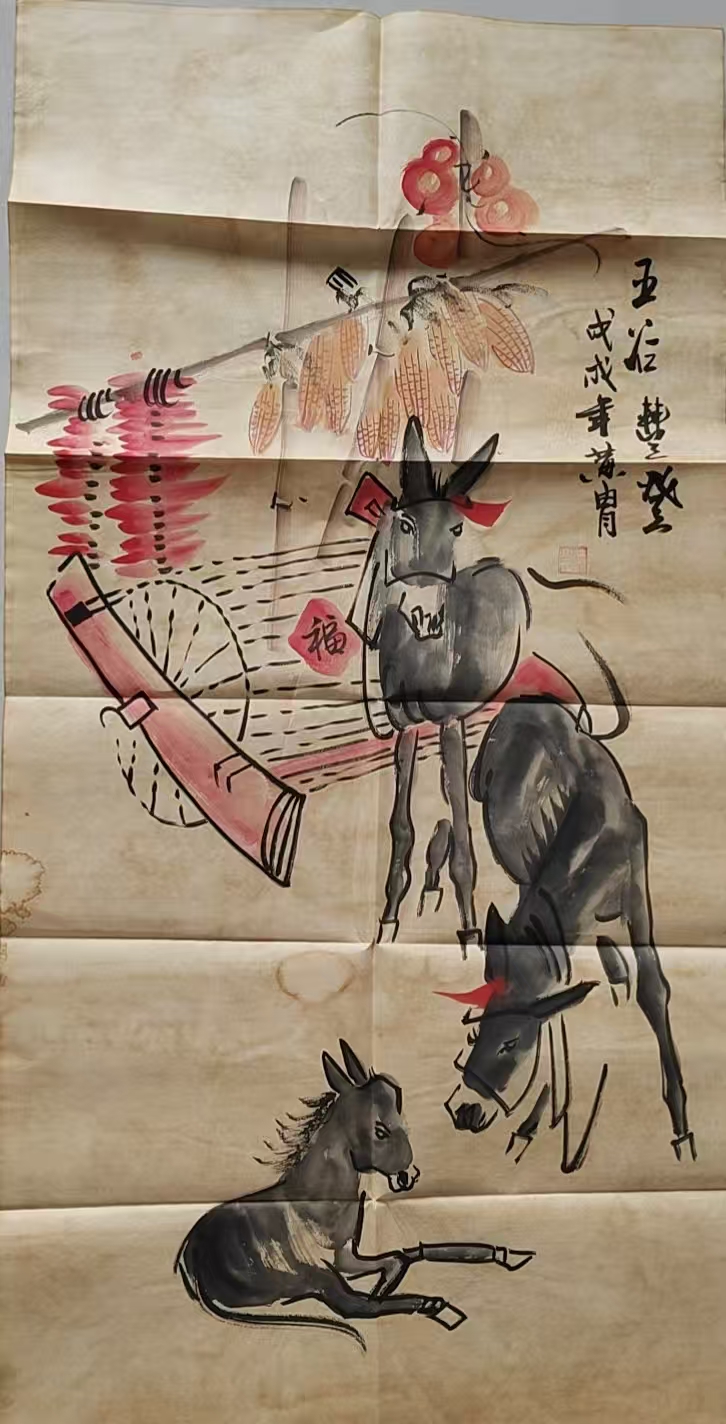 五谷豐登
戊戌年黄胄
福